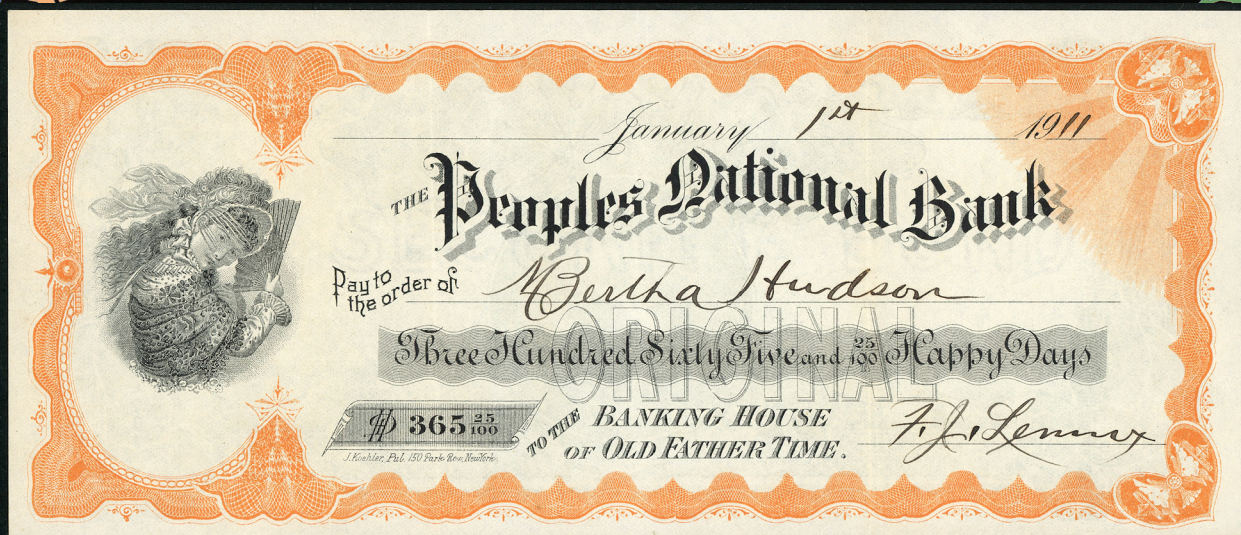 January 1st 1911
THE Peoples National Bank
Pay to the order of Bertha Hudson
ORIGINAL
Three Hundred Sixty Five and 25/100 Happy Days
365 25/100
TO THE BANKING HOUSE
OF OLD FATHER TIME.
F. J. Lennox
J. Koehler, Pub. 150 Park Row, New York.